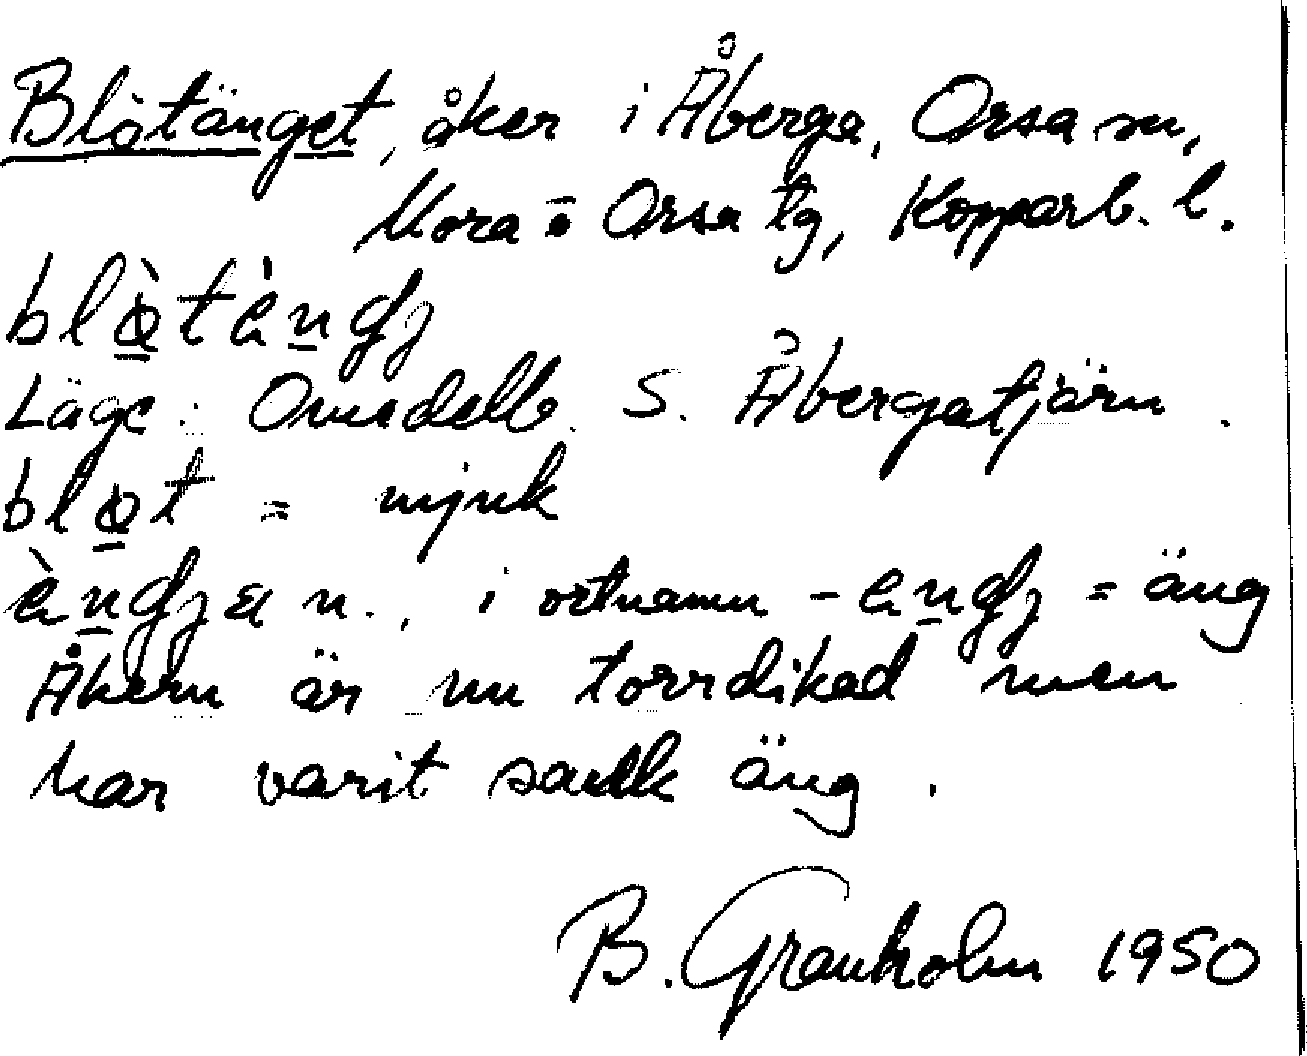 Blötänget, åker i Åberga, Orsa sn,
Mora o Orsa tg, Kopparb. l.
Läge: Omedelb. S. Åbergatjärn.
= mjuk
n., i ortnamn = äng
Åkern är nu torrdikad men
har varit sank äng.
B. Granholm 1950